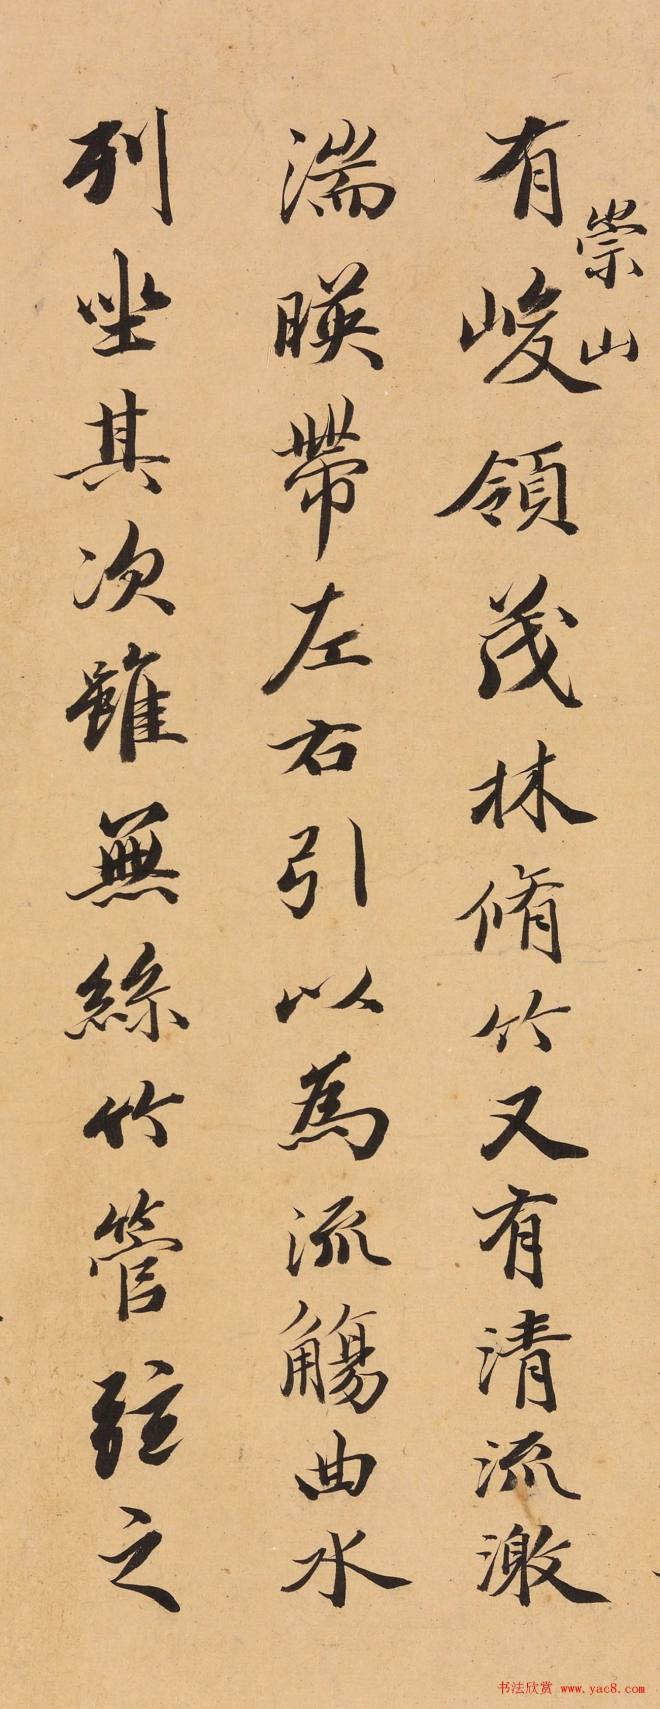 有峻領茂林脩竹又有清流激
崇山
湍暎帶左右引以為流觴曲水
列坐其次雖無絲竹管弦之
书法欣赏 www.yac8.com